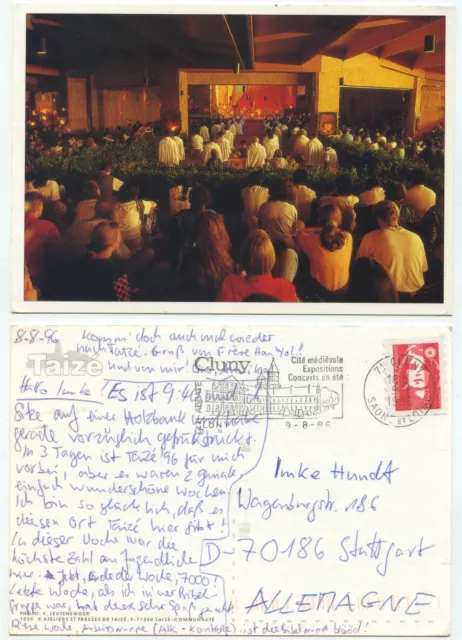 8-8-96
Komm' doch auch mal wieder
nach Taizé! Gruß von Frère Han Yol!
und von mir
Taizé
Hallo Imke! Es ist 9:40 und ich
Sitze auf einer Holzbank und habe
gerade vorzüglich gefrühstückt.
In 3 Tagen ist Taizé 96 für mich
vorbei, aber es waren 2 geniale,
einfach wunderschöne Wochen.
Ich bin so glücklich, daß es
diesen Ort Taizé hier gibt!
In dieser Woche war die
höchste Zahl an Jugendlichen
hier. Jetzt, Ende der Woche, 7000!
Letzte Woche, als ich in der Bibel-
gruppe war, hat diese sehr Spaß gemacht
Diese Woche, Arbeitsgruppe ist die Bibelgruppe blöd!
PHOTO: S. LEUTENEGGER
© ATELIERS ET PRESSES DE TAIZÉ, F-71250 TAIZÉ-COMMUNAUTÉ
Cluny
Cité médiévale
Expositions
Concerts en été
9-8-96
71 CLUNY
SAONE-ET-LOIRE
Imke Hundt
Wagenburgstr. 186
D-70186 Stuttgart
ALLEMAGNE